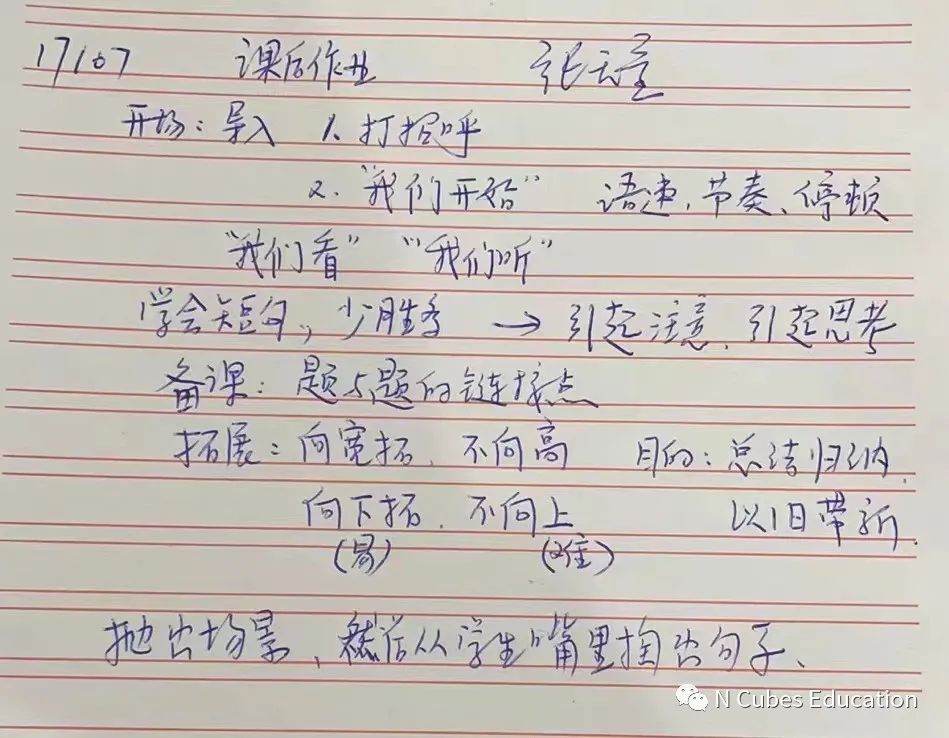 17/07 课后作业 张天童
开场：导入 1. 打招呼
2. "我们开始" 语速、节奏、停顿
"我们看" "我们听"
学会短句，少胜多 → 引起注意、引起思考
备课：题与题的链接点
拓展：向宽拓、不向高 目的：总结归纳、
向下拓、不向上 以旧带新.
(易) (难)
抛出场景、然后从学生嘴里掏出句子、
N Cubes Education